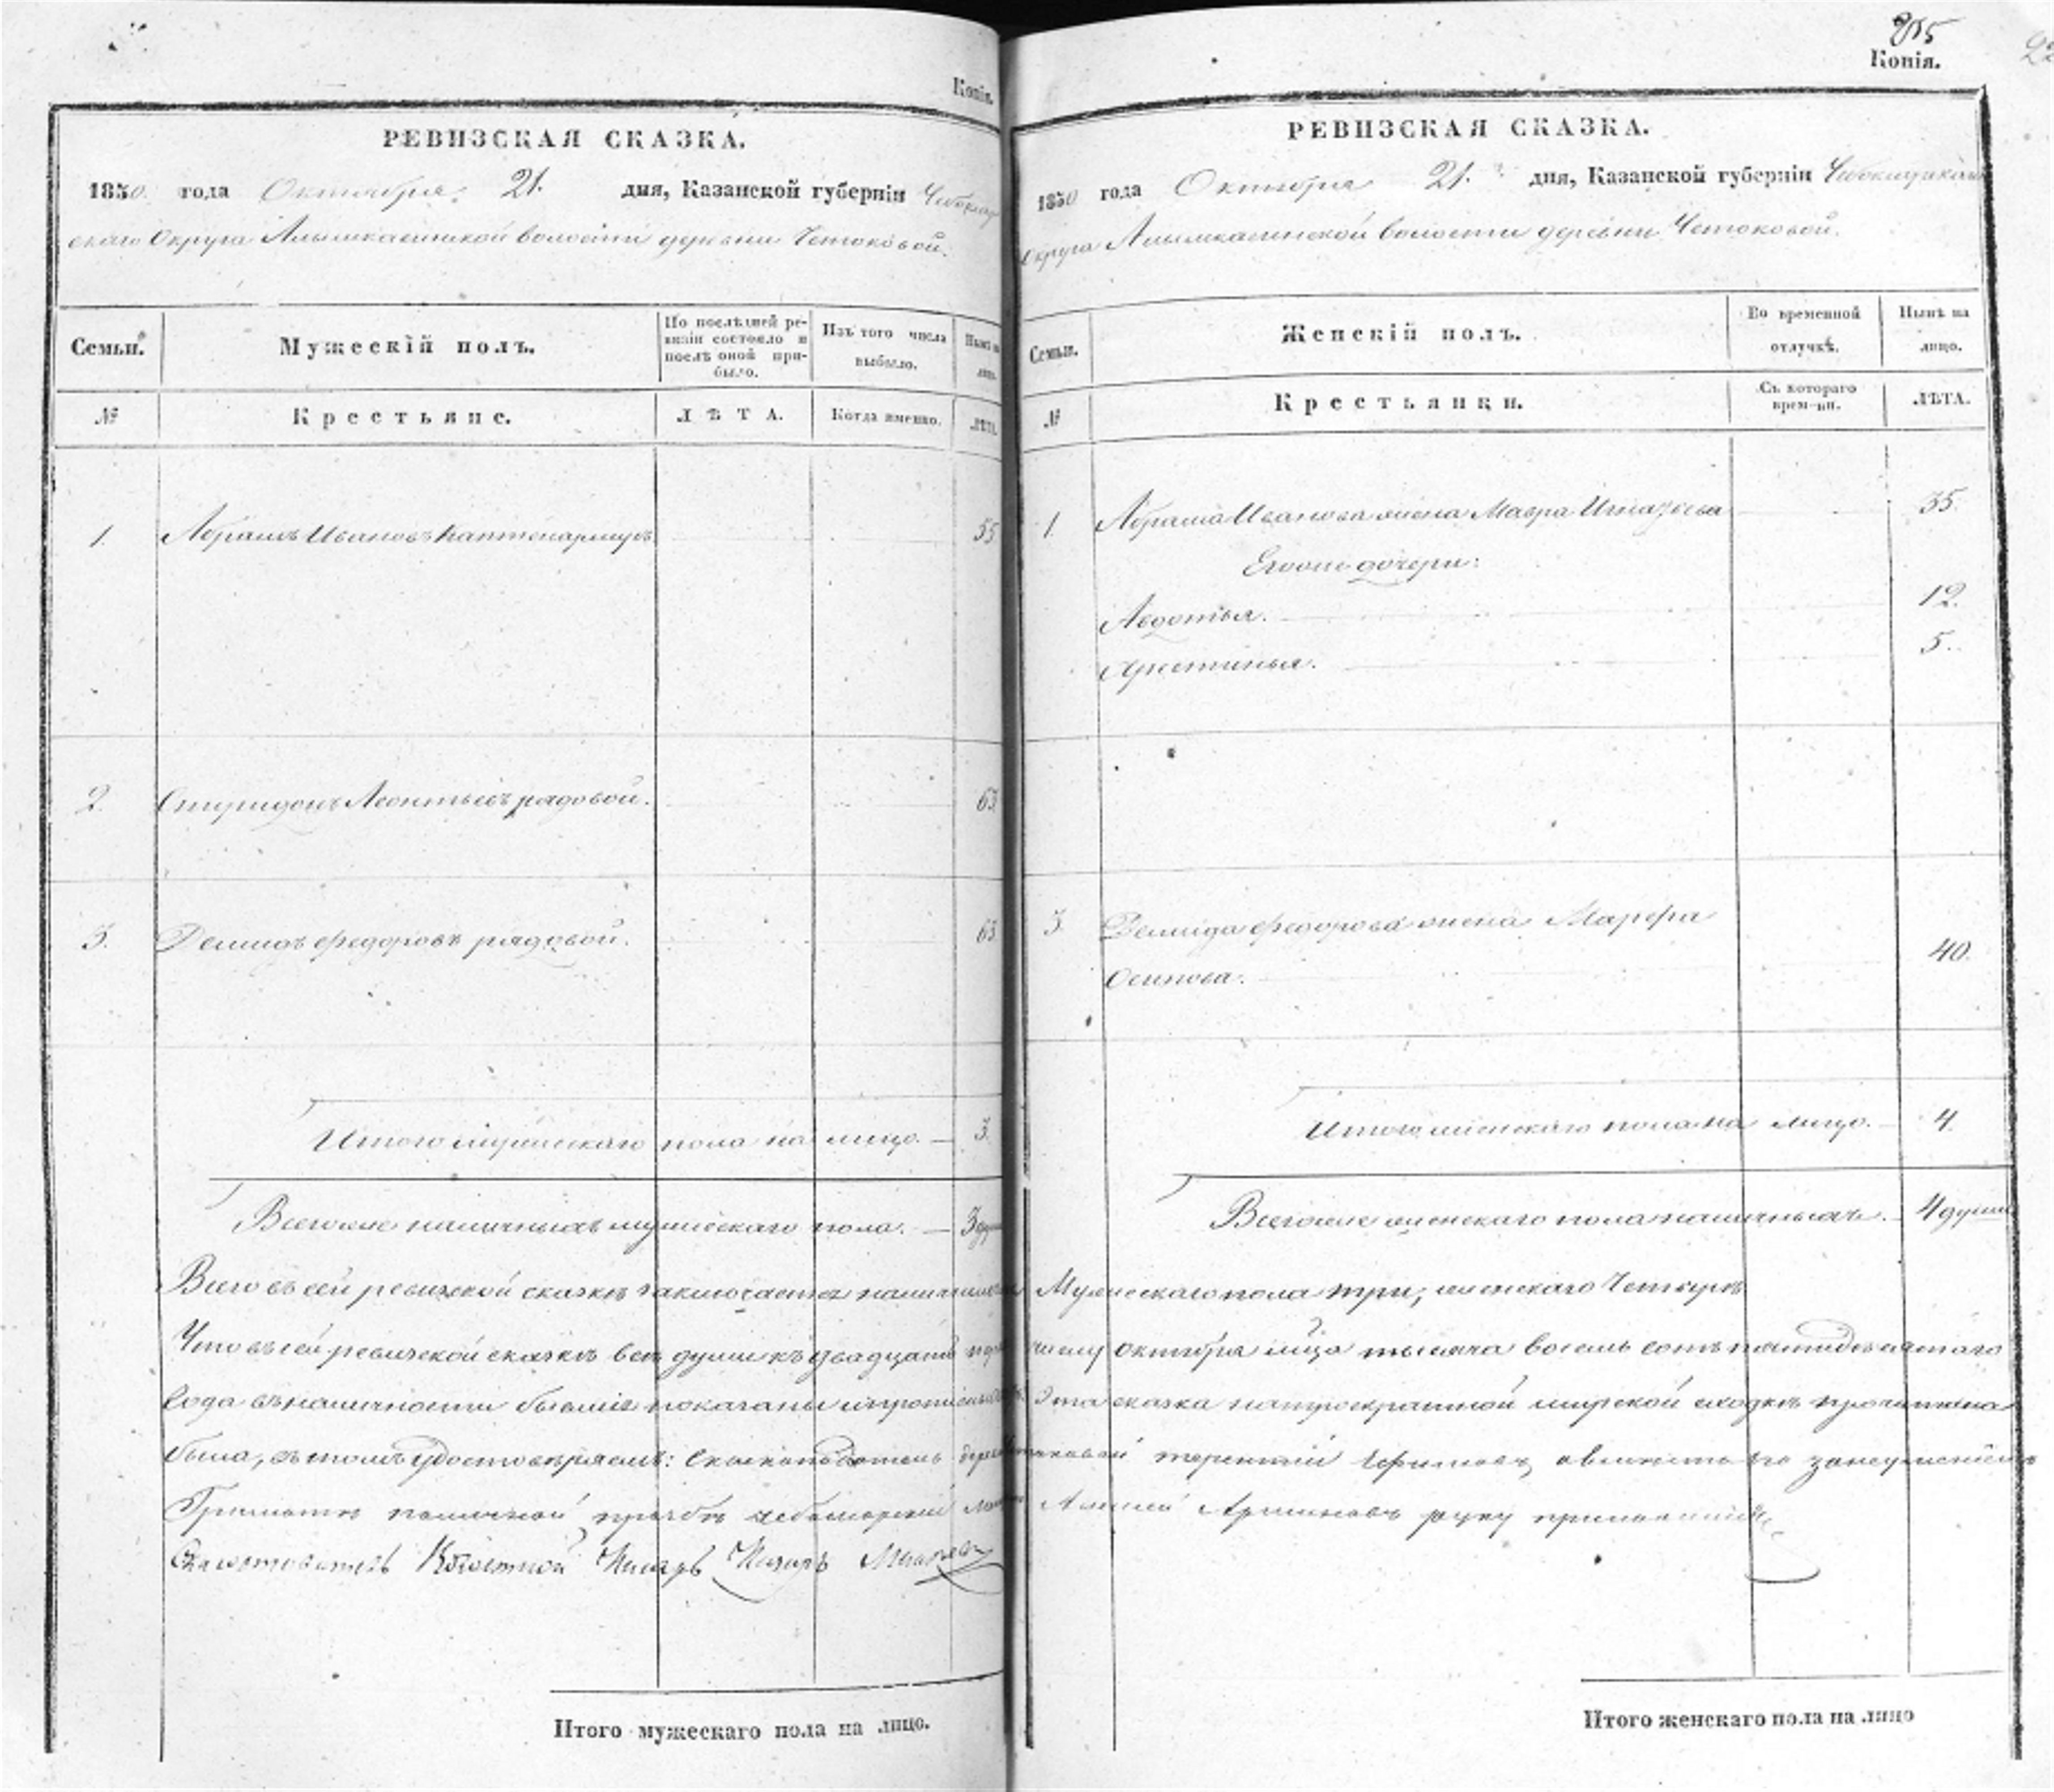 Копія.
РЕВИЗСКАЯ СКАЗКА.
1850 года Октября 21. дня, Казанской губерніи Чебоксар
скаго Округа Алымкасинской волости деревни Четоковой.
Семьи.
Мужескій полъ.
По послѣдней ре-
визіи состояло и
послѣ оной при-
было.
Изъ того числа
выбыло.
Нынѣ на
лицо.
№
Крестьяне.
ЛѢТА.
Когда именно.
ЛѢТА.
1. Абрамъ Ивановъ Каптенармусъ 55
2. Спиридонъ Леонтьевъ рядовой. 63
3. Демидъ Федоровъ рядовой. 63
Итого мужескаго пола на лицо. — 3.
Всего же наличныхъ мужескаго пола. — 3 души
Всего въ сей ревизской сказкѣ заключается наличныхъ
Что въ сей ревизской сказкѣ всѣ души къ двадцать
Года въ наличности бывшія показаны и
была, въ томъ удостовѣряемъ:
Грамотѣ по личной прозьбѣ
Волостной Писарь
Итого мужескаго пола на лицо.
215
Копія.
РЕВИЗСКАЯ СКАЗКА.
1850 года Октября 21. дня, Казанской губерніи Чебоксарскаго
Округа Алымкасинской волости деревни Четоковой.
Семьи.
Женскій полъ.
Во временной
отлучкѣ.
Нынѣ на
лицо.
№
Крестьянки.
Съ котораго
времени.
ЛѢТА.
1. Абрама Иванова жена Мавра Игнатьева 35.
Егоже дочери:
Авдотья. 12.
Христинья. 5.
3. Демида Федорова жена Марфа
Осипова. 40.
Итого женскаго пола на лицо. 4.
Всего же женскаго пола наличныхъ. — 4 души
Мужескаго пола три, женскаго Четыре
октября мца тысяча восемь сотъ пятидесятаго
Эта сказка на троекратной мирской сходкѣ прочитана
Терентій Ефимовъ, а вмѣсто его
руку приложилъ
Итого женскаго пола на лицо